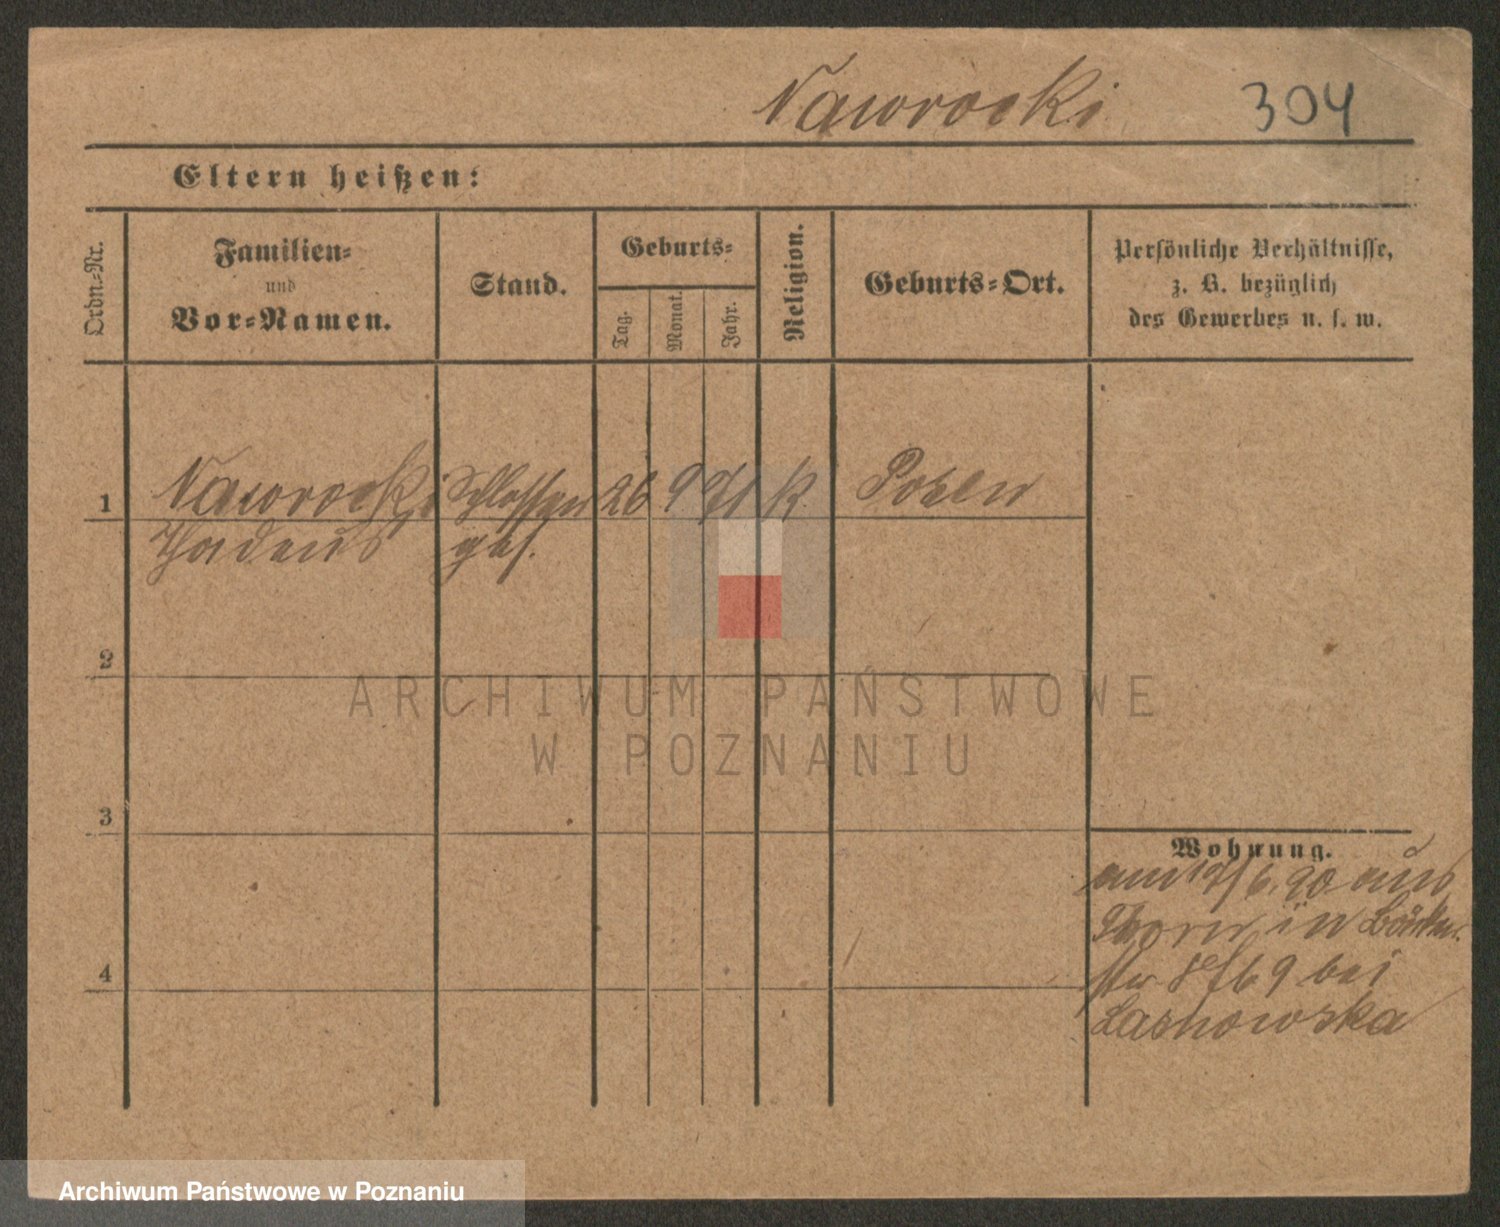 Nawrocki 304
Eltern heißen:
Ordn.-Nr.
Familien-
und
Vor-Namen.
Stand.
Geburts-
Tag.
Monat.
Jahr.
Religion.
Geburts-Ort.
Persönliche Verhältnisse,
z. B. bezüglich
des Gewerbes u. s. w.
1 Nawrocki Schlosser 26 9 71 K Posen
Thadeus ges.
2
3
4
Wohnung.
am 17/6. 90 aus
Thorn in
str 9 bei
Lasnowska
ARCHIWUM PAŃSTWOWE
W POZNANIU
Archiwum Państwowe w Poznaniu